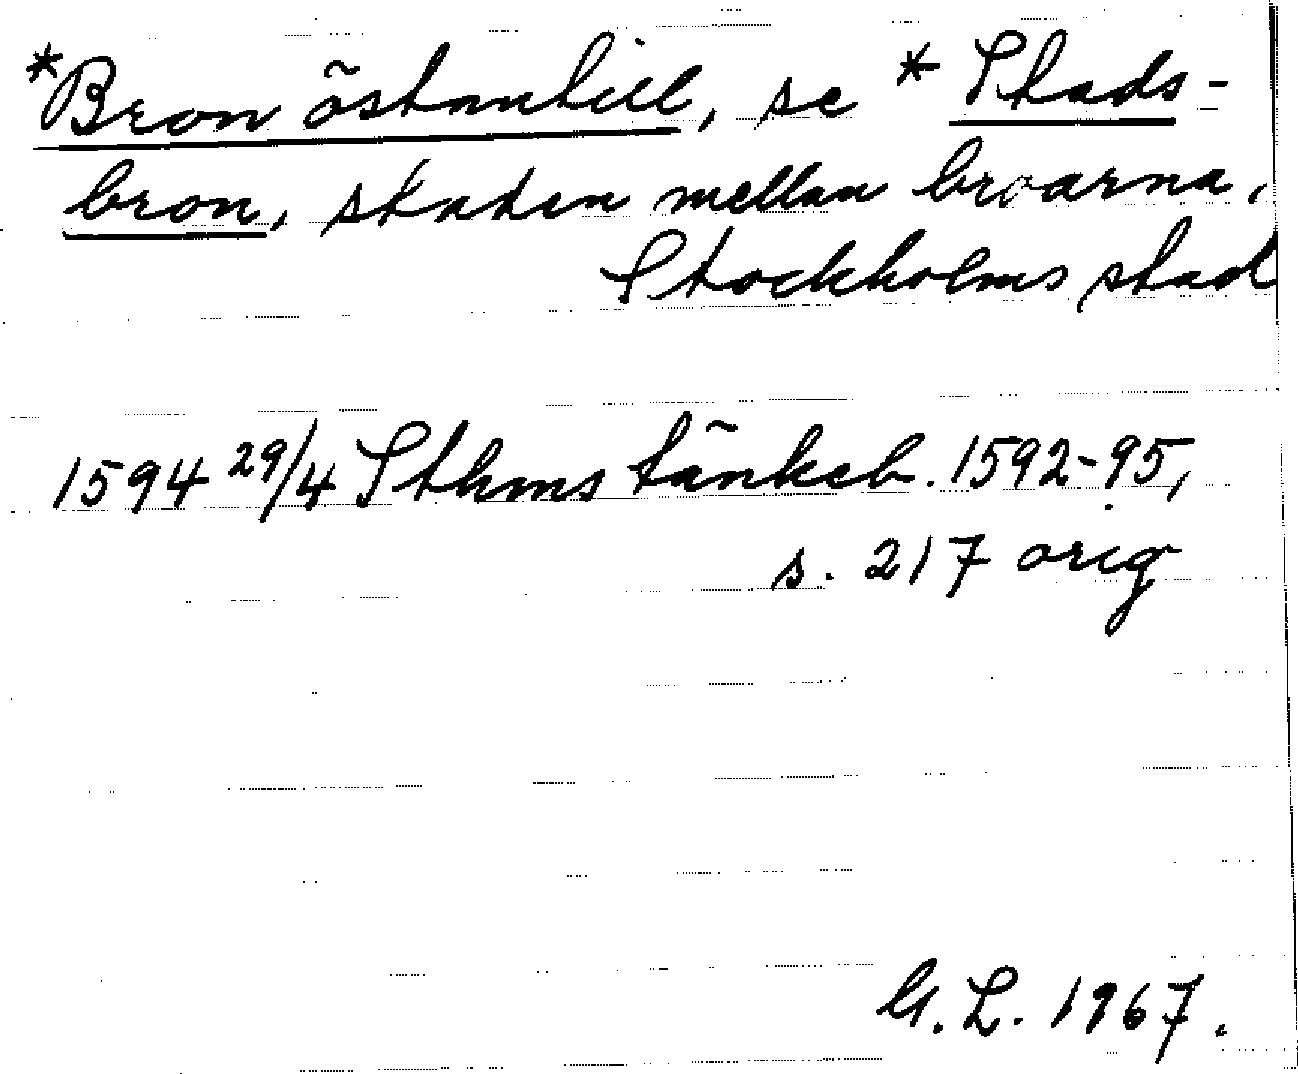 *Bron östantill, se *Stads-
bron, staden mellan broarna,
Stockholms stad
1594 29/4 Sthms tänkeb. 1592-95,
s. 217 orig
G. L. 1967.